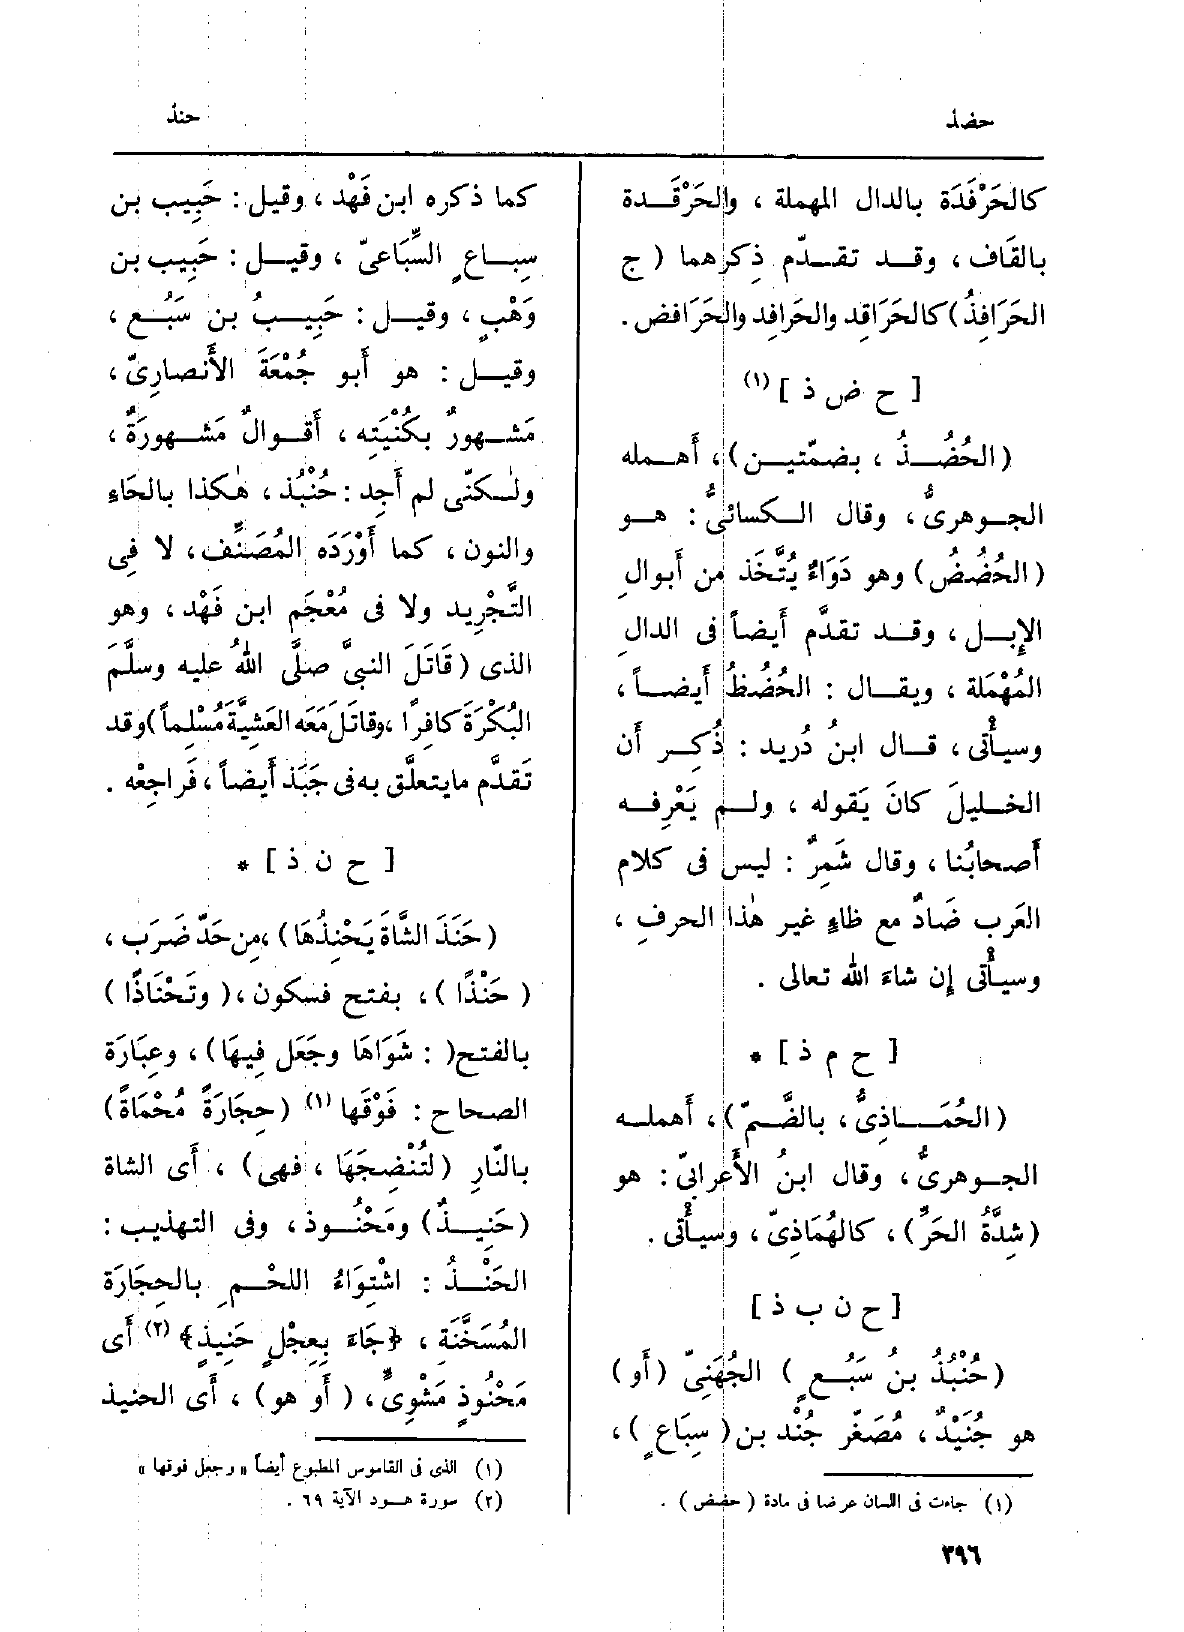 حضذ
حنذ
كالحَرْفَدَة بالدال المهملة ، والحَرْقَدة
بالقَاف ، وقد تقدّم ذِكرهما ( ج
الحَرَافِذُ ) كالحَرَاقِد والحَرافِد والحَرَافض .
[ ح ض ذ ] (١)
( الحُضُذُ ، بضمّتين ) ، أَهمله
الجوهرىُّ ، وقال الكسائىُّ : هو
( الحُضُضُ ) وهو دَوَاءٌ يُتَّخَذ من أَبوالِ
الإِبل ، وقد تقدَّم أَيضاً فى الدالِ
المُهْمَلة ، ويقال : الحُضُظُ أَيضاً ،
وسيأْتى ، قال ابنُ دُريد : ذُكِر أَن
الخليلَ كانَ يَقوله ، ولم يَعْرِفه
أَصحابُنا ، وقال شَمِرٌ : ليس فى كلام
العَرب ضَادٌ مع ظاءٍ غير هٰذا الحرفِ ،
وسيأْتى إِن شاءَ الله تعالى .
[ ح م ذ ] *
( الحُمَاذِىُّ ، بالضَّمّ ) ، أَهمله
الجوهرىُّ ، وقال ابنُ الأَعرابىّ : هو
( شِدَّةُ الحَرِّ ) ، كالهُمَاذِىّ ، وسيأْتى .
[ ح ن ب ذ ]
( حُنْبُذُ بنُ سَبُعٍ ) الجُهَنِىّ ( أَو )
هو جُنَيْدٌ ، مُصَغّر جُنْد بن ( سِبَاعٍ ) ،
(١) جاءت فى اللسان عرضا فى مادة ( حضض ) .
كما ذكره ابن فَهْد ، وقيل : حَبِيب بن
سِباعٍ السِّبَاعىّ ، وقيل : حَبِيب بن
وَهْبٍ ، وقيل : حَبِيبُ بن سَبُع ،
وقيل : هو أَبو جُمْعَةَ الأَنصارِىّ ،
مَشهورٌ بكُنْيَتِه ، أَقوالٌ مَشهورَةٌ ،
ولٰكنّى لم أَجِد : حُنْبُذ ، هٰكذا بالحَاءِ
والنون ، كما أَوْرَدَه المُصَنِّف ، لا فِى
التَّجْرِيد ولا فى مُعْجَم ابن فَهْد ، وهو
الذى ( قَاتَلَ النبىَّ صلَّى اللهُ عليه وسلَّمَ
البُكْرَةَ كافِرًا ، وقاتَلَ مَعَه العَشِيَّةَ مُسْلِماً ) وقد
تَقدَّم ما يتعلَّق به فى جَبَذ أَيضاً ، فَراجِعْه .
[ ح ن ذ ] *
( حَنَذَ الشَّاةَ يَحْنِذُهَا ) ، مِن حَدّ ضَرَب ،
( حَنْذًا ) ، بفتح فسكون ، ( وتَحْنَاذًا )
بالفتح ( : شَوَاهَا وجَعَل فِيهَا ) ، وعِبَارَة
الصحاح : فَوْقَها (١) ( حِجَارَةً مُحْمَاةً )
بالنّارِ ( لتُنْضِجَهَا ، فهى ) ، أَى الشاة
( حَنِيذٌ ) ومَحْنُوذ ، وفى التهذيب :
الحَنْذُ : اشْتِوَاءُ اللحْمِ بالحِجَارَة
المُسَخَّنَة ، ﴿جَاءَ بِعِجْلٍ حَنِيذٍ﴾ (٢) أَى
مَحْنُوذٍ مَشْوِىٍّ ، ( أَو هو ) ، أَى الحنيذ
(١) الذى فى القاموس المطبوع أيضاً « وجعل فوقها »
(٢) سورة هود الآية ٦٩ .
٣٩٦